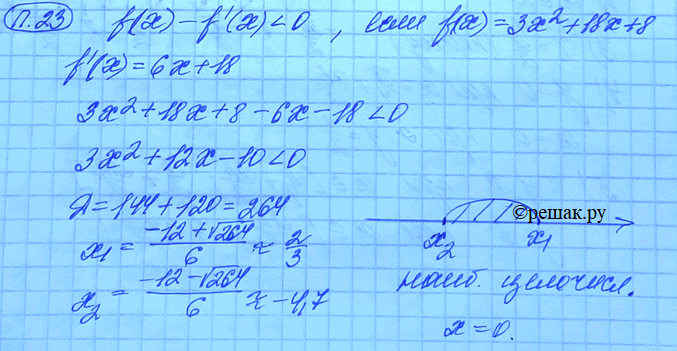 П.23 f(x) - f'(x) < 0, если f(x) = 3x² + 18x + 8
f'(x) = 6x + 18
3x² + 18x + 8 - 6x - 18 < 0
3x² + 12x - 10 < 0
Д = 144 + 120 = 264
x₁ = (-12 + √264)/6 ≈ 2/3
x₂ = (-12 - √264)/6 ≈ -4,7
©решак.ру
x₂ x₁
наиб. целочисл.
x = 0.